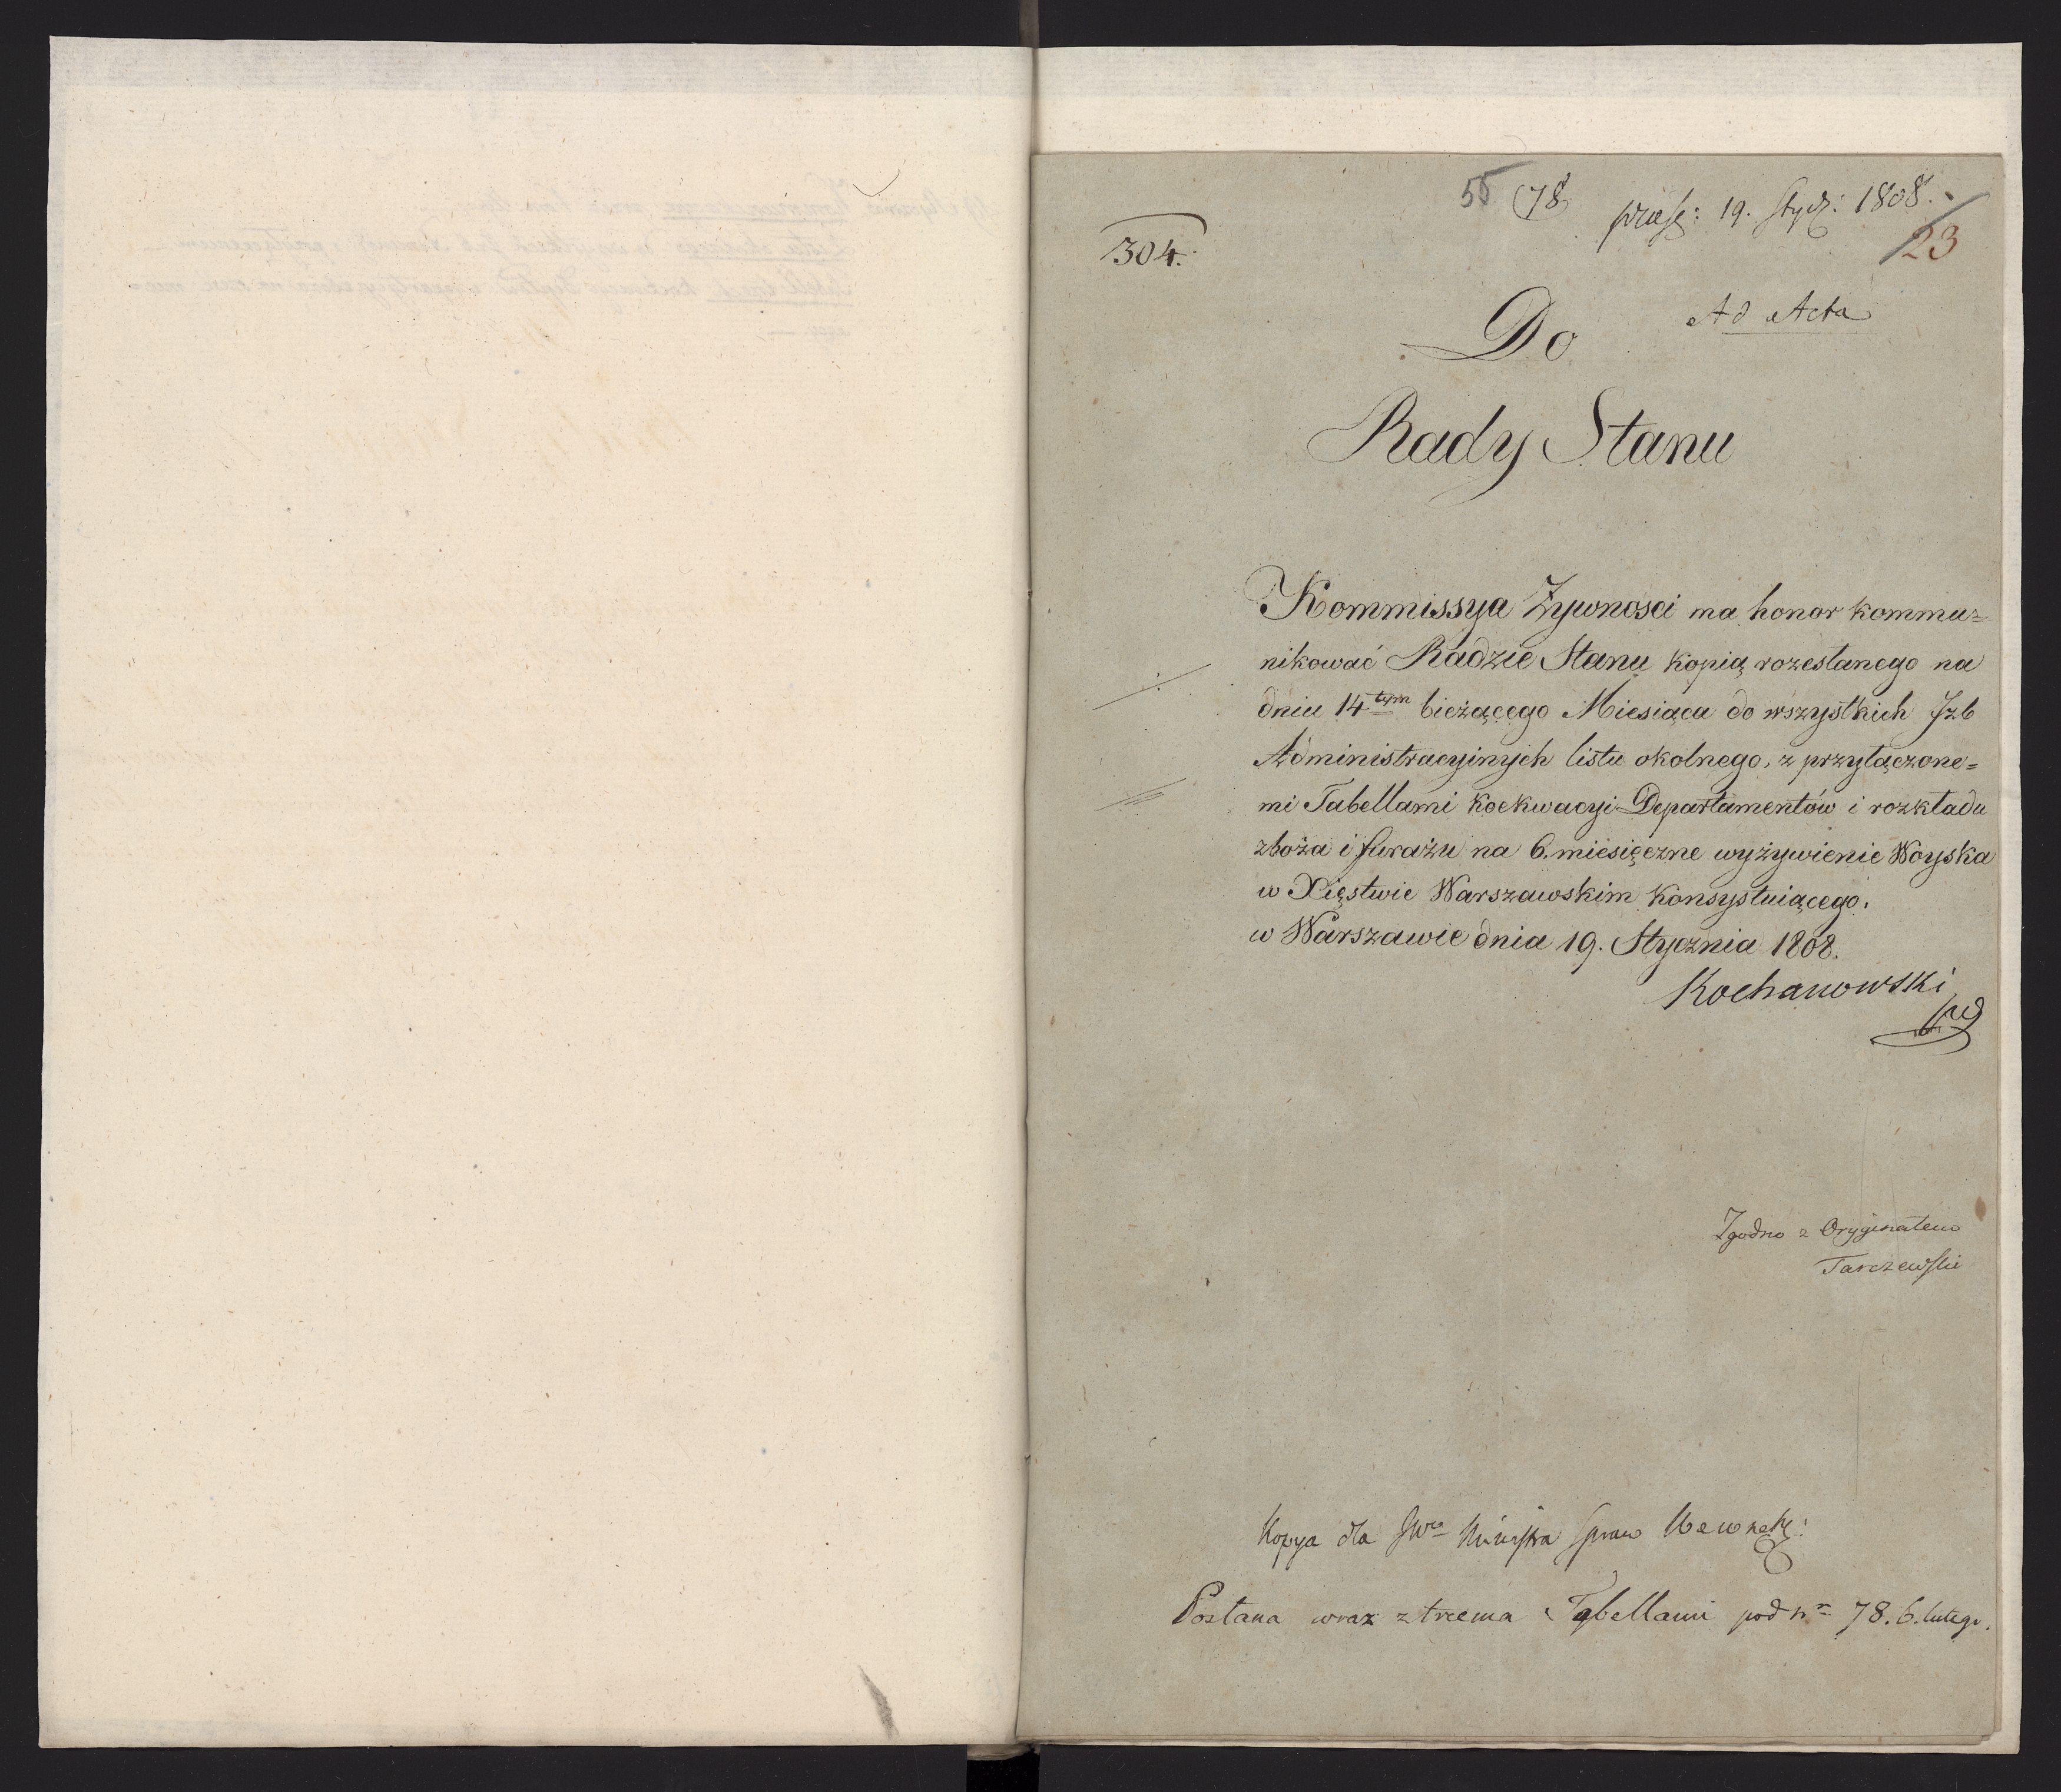 55 78 præs: 19. Stycz: 1808.
304.
23
Ad Acta
Do
Rady Stanu
Kommissya Żywnosci ma honor kommu=
nikować Radzie Stanu kopią rozesłanego na
dniu 14tym bieżącego Miesiąca do wszystkich Jzb
Administracyinych listu okolnego, z przyłączone=
mi Tabellami koekwacyi Departamentów i rozkładu
zboża i furażu na 6. miesięczne wyżywienie Woyska
w Xięstwie Warszawskim konsystuiącego.
w Warszawie dnia 19. Stycznia 1808.
Kochanowski
Zgodno z Oryginałem
Tarczewski
Kopya dla JWo Ministra Spraw Wewnętz:
Posłana wraz z trzema Tabellami pod nr 78. 6. lutego.